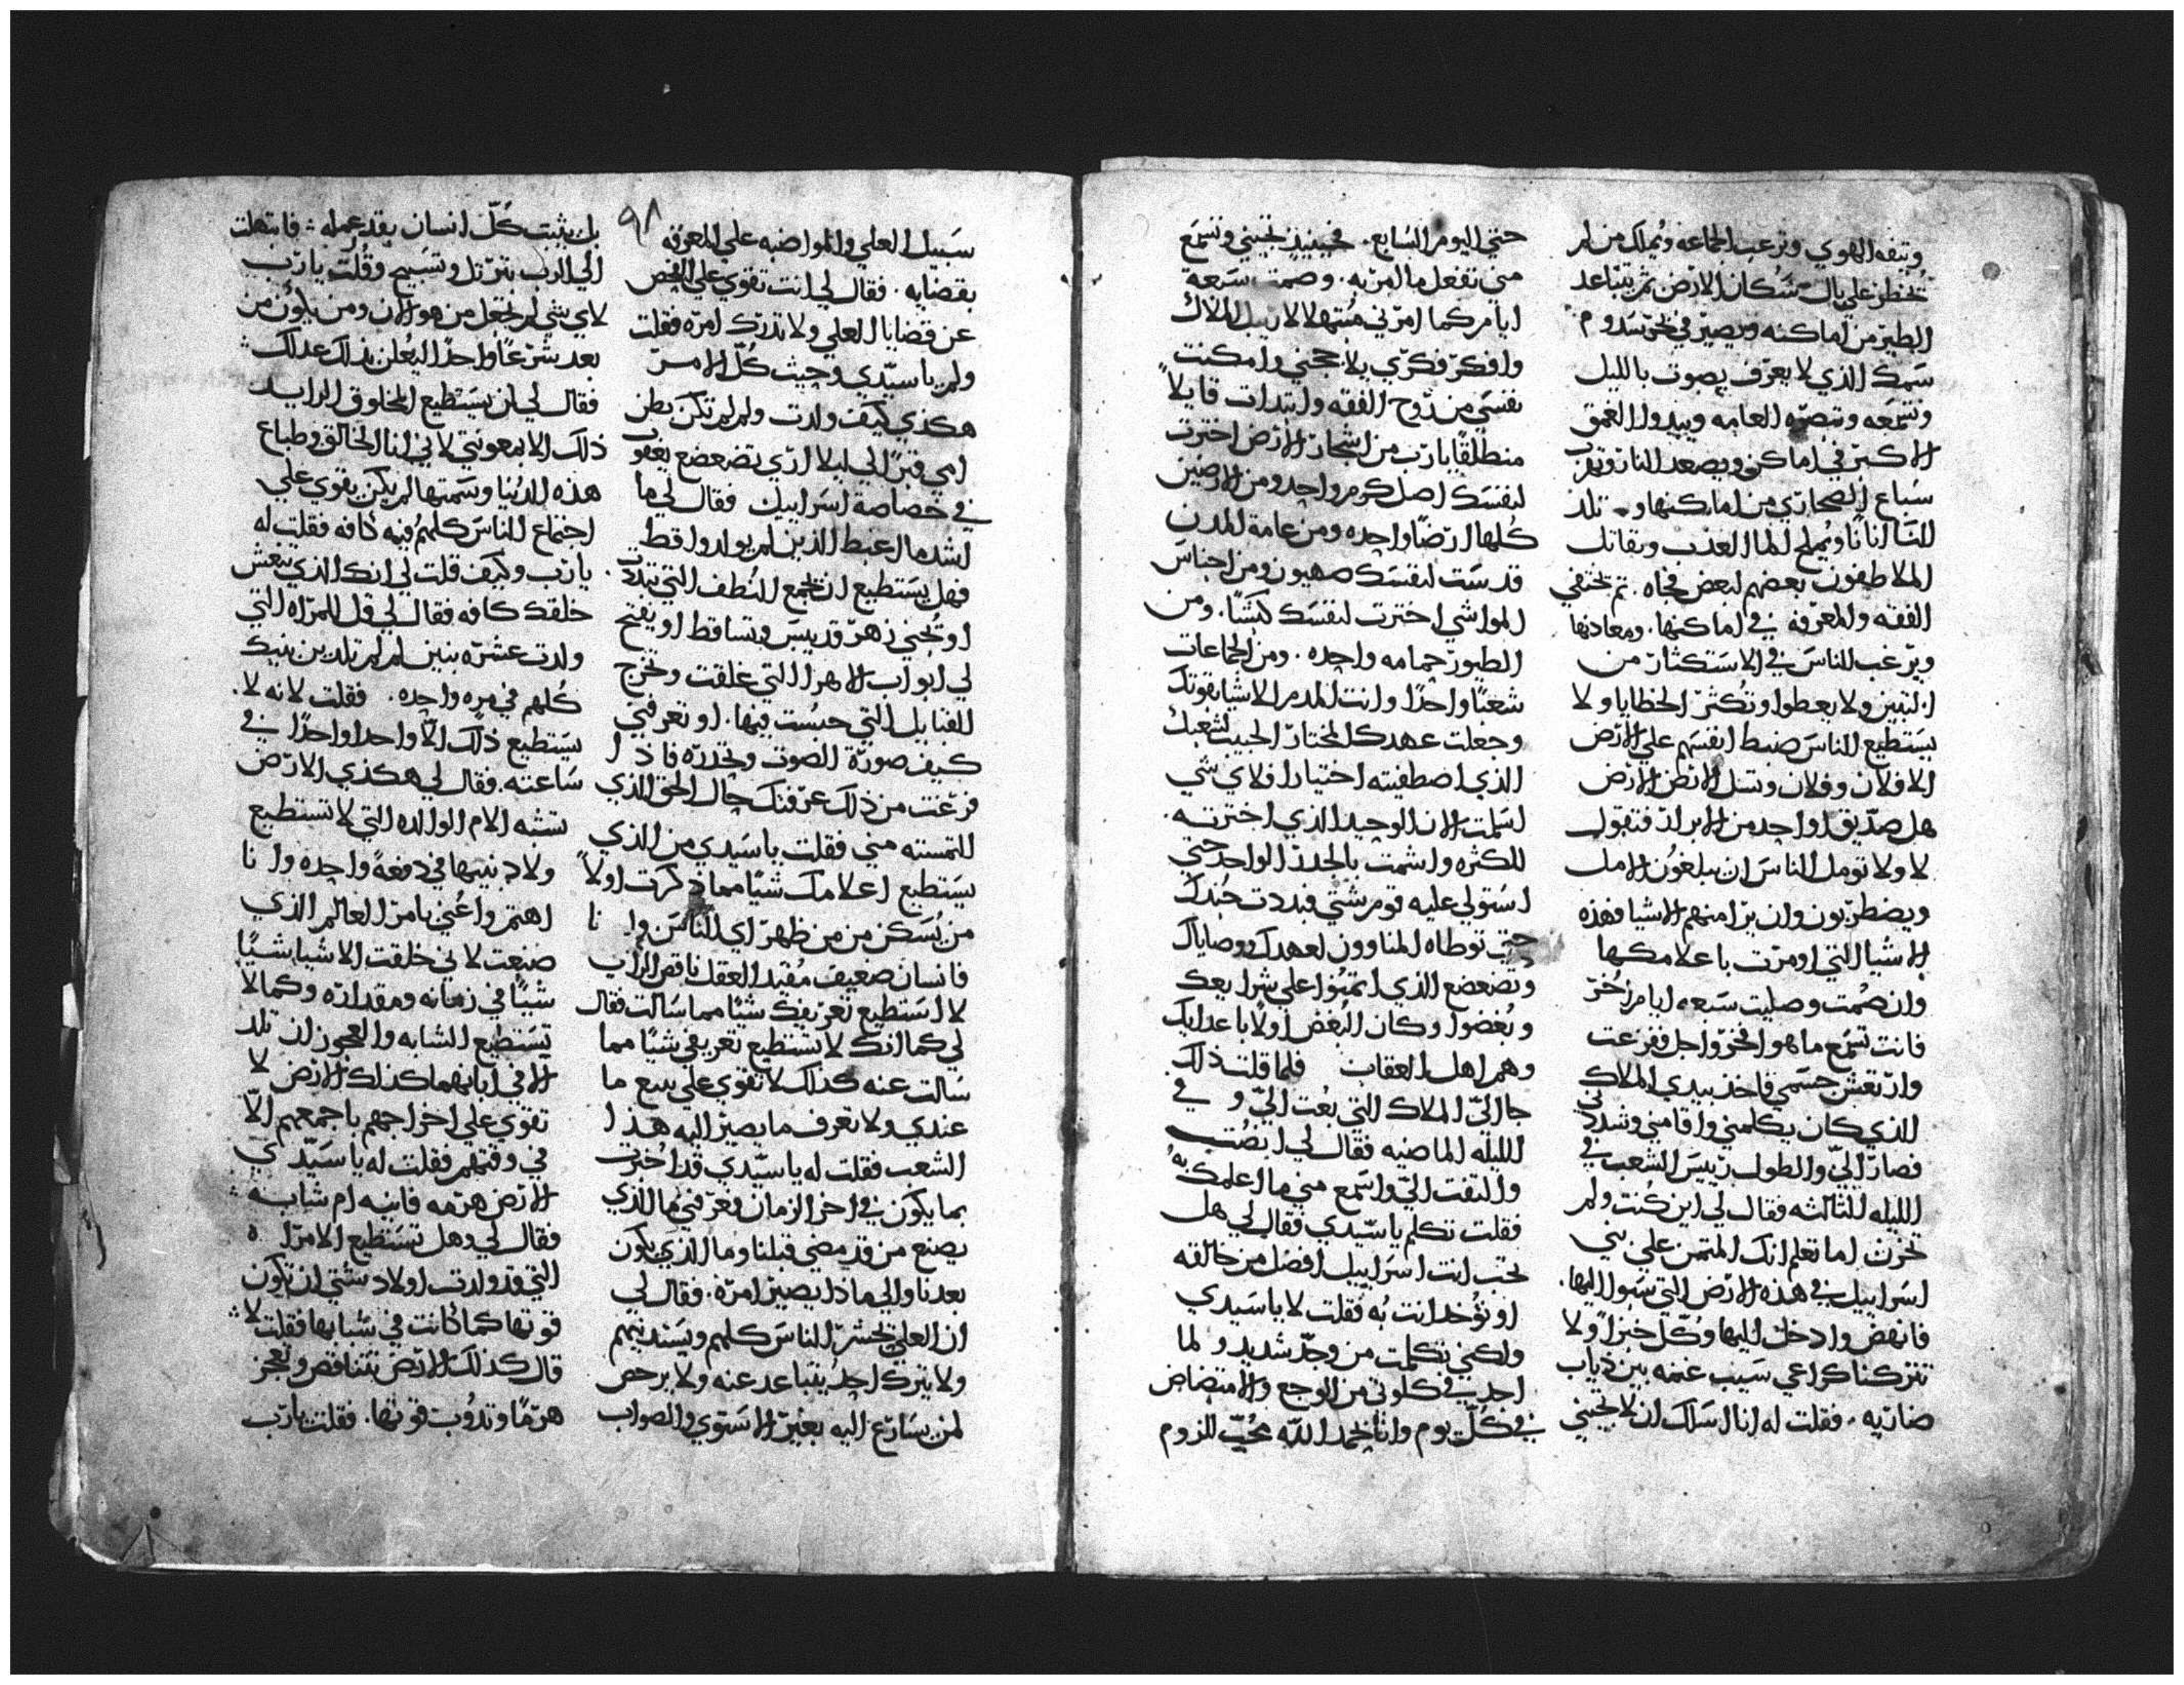 وتنفه الهوي وترعب الجماعه ويملك من لم
تخطر علي بال سكان الارض ثم يتباعد
الطير من اماكنه ويصير في بحر سدوم
سمك الذي لا يعرف يصوت بالليل
وتسمعه وتبصره العامه ويبدوا العمق
الاكبر في اماكن ويصعد النار وتهرب
سباع الصحاري من اماكنها و تلد
النسا اناثا ويملح الما العذب ويقاتل
الملاطفون بعضهم لبعض فجاه. ثم تختفي
الفقه والمعرفه في اماكنها. ومعادنها
ويرغب الناس في الاستكثار من
البنين ولا يعطوا وتكثر الخطايا ولا
يستطيع الناس ضبط انفسهم علي الارض
الا فلان وفلان وتسل الارض الارض
هل صديقا واحد من الابرار فتقول
لا ولا تومل الناس ان يبلغون الامل
ويضطربون وان برا منهم الاشيا فهذه
الاشيا التي اومرت باعلامكها
وان صمت وصليت سبعه ايام اخر
فانت تسمع ما هو افخر واجل ففزعت
وارتعش جسمي فاخذ بيدي الملاك
الذي كان يكلمني واقامني وشددني
فصار الي والطول رييس الشعب في
الليله الثالثه فقال لي اين كنت ولم
تحزن اما تعلم انك الموتمن علي بني
اسراييل في هذه الارض التي سبوا اليها.
فانهض وادخل اليها وكل خبزا ولا
تتركنا كراعي سيب غنمه بين ذياب
ضاريه. فقلت له انا اسلك ان لا تجيني
حتي اليوم السابع. فحينيذ تجيني وتسمع
مني تفعل ما امر به. وصمت سبعة
ايام كما امرني مبتهلا لاربيل الملاك
وافكر فكري بلا حجني وامكنت
نفسي من روح الفقه وابتدات قايلا
منطلقا يا رب من اشجار الارض اخترت
لنفسك اصل كرم واحد ومن الارضين
كلها ارضا واحده ومن عامة المدن
قدست لنفسك صهيون ومن اجناس
المواشي اخترت لنفسك كبشا. ومن
الطيور حمامه واحده. ومن الجماعات
شعبا واحدا وانت المدبر الاشيا بقوتك
وجعلت عهدك المختار الحبيب لشعبك
الذي اصطفيته اختيارا فلاي شي
اسلمت الان الوحيد الذي اخترته.
للكثره واشمت بالجدر الواحد حتي
استولي عليه قوم شتي فبددت حبك
حتي توطاه المناوون لعهدك ووصاياك
وتضعضع الذي ايتمنوا علي شرايعك
وبغضوا وكان البغض اولا باعدايك
وهم اهل العقاب فلما قلت ذلك
جا الي الملاك التي بعث الي و في
الليله الماضيه فقال لي انصت
والتفت الي واسمع مني ما اعلمك به
فقلت تكلم يا سيدي فقال لي هل
تحب انت اسراييل افضل من خالقه
او توخد انت به فقلت لا يا سيدي
ولكني تكلمت من وجد شديد و لما
اجد في كلوتي من الوجع والامتضاض
في كل يوم وانا بحمد الله محب للزوم
٩٨
سبيل العلي والمواضبه علي المعرفه
بقضايه. فقال لي انت تقوي علي الفحص
عن قضايا العلي ولا تدرك امره فقلت
ولم يا سيدي وحيث كل الامر
هكذي كيف ولدت ولم لم تكن بطن
امي قبرا لي ليلا اري تضعضع يعقوب
في خصاصة اسراييل فقال لي ما
اشد ما اغتبط الذين لم يولدوا قط
فهل يستطيع ان تجمع النطف التي تبددت.
او تجني زهر قد يبس وتساقط او يفتح
لي ابواب الاهرا التي غلقت وتخرج
القبايل التي حبست فيها. او تعرفني
كيف صورة الصوت وتحدره فاذا
فرغت من ذلك عرفتك حال الحق الذي
التمسته مني فقلت يا سيدي من الذي
يستطيع اعلامك شيا مما ذكرت اولا
من يسكن من من ظهر اي الناس وانا
فانسان ضعيف مفند العقل ناقص الراي
لا استطيع تعريفك شيا مما سالت فقال
لي كما انك لا تستطيع تعريفي شيا مما
سالت عنه كذلك لا تقوي علي بيع ما
عندي ولا تعرف ما يصير اليه هذا
الشعب فقلت له يا سيدي قد اخبرت
بما يكون في اخر الزمان فعرفني ما الذي
يصنع من قد مضي قبلنا وما الذي يكون
بعدنا والي ماذا يصير امره. فقال لي
ان العلي يحشر الناس كلهم ويستدنيهم
ولا يترك احد يتباعد عنه ولا يرحص
لمن يسارع اليه بغير الاستوي والصواب
بل يثبت كل انسان بقد عمله فابتهلت
الي الرب بترتل وتسبيح وقلت يا رب
لاي شي لم تجعل من هو الان ومن يكون من
بعد شرعا واحدا ليعلن بذلك عدلك
فقال لي لن يستطيع المخلوق الزايد
ذلك الا بمعونتي لاني انا الخالق وطباع
هذه الدنيا وسمتها لم يكن يقوي علي
اجتماع الناس كلهم فيه كافه فقلت له
يا رب وكيف قلت لي انك الذي تنعش
خلقك كافه فقال لي قل للمراه التي
ولدت عشره بنين لم لم تلدين بنيك
كلهم في مره واحده. فقلت لانه لا.
يستطيع ذلك الا واحدا واحدا في
ساعته. فقال لي هكذي الارض
تشبه الام الوالده التي لا تستطيع
ولاد بنيها في دفعة واحده وانا
اهتم واعني بامر العالم الذي
صنعت لاني خلقت الاشيا شيا
شيا في زمانه ومقداره وكما لا
تستطيع الشابه والعجوز ان تلد
الا في ابانهما كذلك الارض لا
تقوي علي اخراجهم باجمعهم الا
في وقتهم فقلت له يا سيدي
الارض هرمه فانيه ام شابه
فقال لي وهل تستطيع الامراه
التي قد ولدت اولاد شتي ان تكون
قوتها كما كانت في شبابها فقلت لا
قال كذلك الارض تتناقص وتعجز
هرما وتذوب قوتها. فقلت يا رب